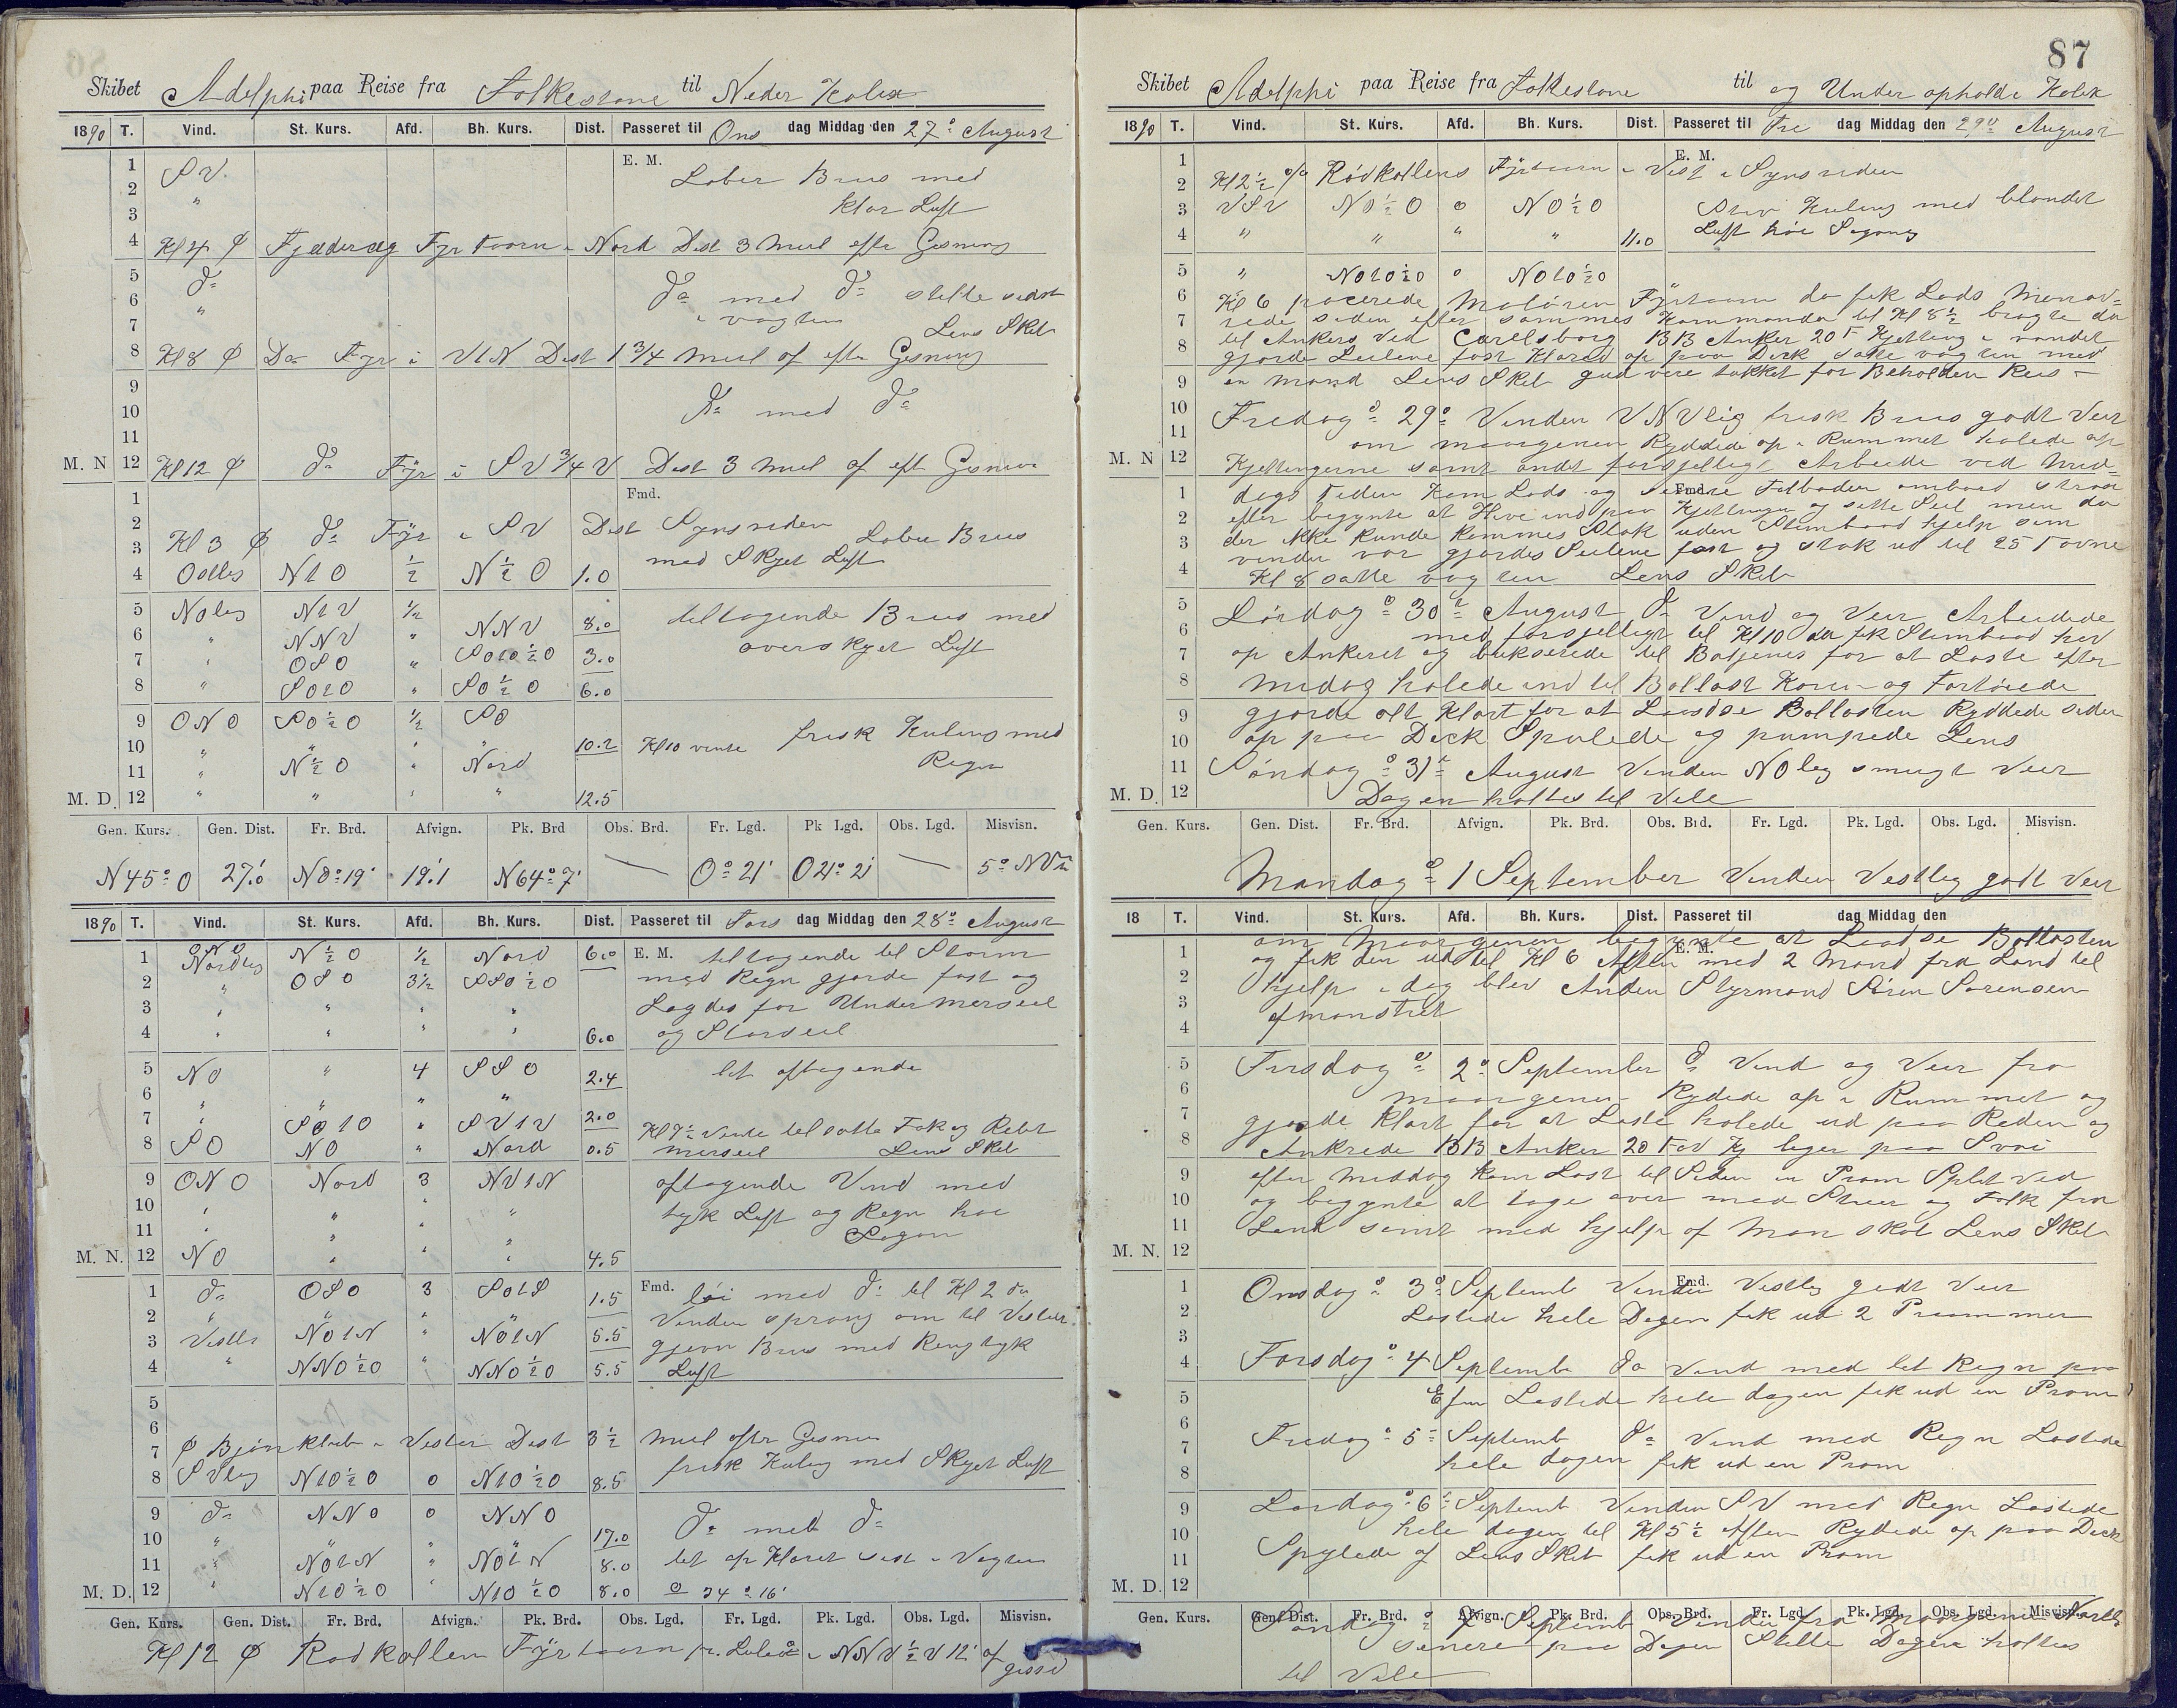 Skibet Adelphi paa Reise fra Folkestone til Neder Kalix
1890 T. Vind. St. Kurs. Afd. Bh. Kurs. Dist. Passeret til Ons dag Middag den 27º August
E. M.
1 SV. Laber Bris med
2 " klar Luft
3
4 Kl 4 Φ Fjæderæg Fyr taarn i Nord Dist 3 Miil efter Gisning
5 do do med do stille sidst
6 " i vagten
7 Lens Skib
8 Kl 8 Φ Do Fyr i V t N Dist 1 3/4 Miil af efter Gisning
9
10 do med do
11
M. N 12 Kl 12 Φ do Fyr i SV 3/4 V Dist 3 Miil af eft Gisning
Fmd.
1
2
3 Kl 3 Φ do Fyr i SV Dist Synsviden Laber Bris
4 Ostlig N t O 1/2 N 1/2 O 1.0 med Skyet Luft
5 NOlig N t V 1/2 NNV 8.0 tiltagende Bris med
6 " NNV " overskyet Luft
7 " OSO " SOtO 1/2 O 3.0
8 " SOtO " SO 1/2 O 6.0
9 ONO SO 1/2 O 1/2 SO
10 " " " " 10.2 Kl 10 vente frisk Kuling med
11 " N 1/2 O " Nord Regn
M. D. 12 " " " " 12.5
Gen. Kurs. Gen. Dist. Fr. Brd. Afvign. Pk. Brd Obs. Brd. Fr. Lgd. Pk Lgd. Obs. Lgd. Misvisn.
N 45º O 27.'0 N 0º 19' 19.1 N 64º 7' — O º 21' O 21º 21' — 5º NV
1890 T. Vind. St. Kurs. Afd. Bh. Kurs. Dist. Passeret til Tors dag Middag den 28º August
1 ONO Nordlig N 1/2 O 1/2 Nord 6.0 E. M. tiltagende til Storm
2 " OSO 3 1/2 SSO 1/2 O med Regn gjorde fast og
3 " " " " Lagdes for Undermerseil
4 " " " " 6.0 og Storseil
5 NO " 4 SSO 2.4 lit aftagende
6 " " " "
7 " SO t O " SV t V 2.0 Kl 7 1/2 vente til satte Fok og Rebt
8 SO NO " Nord 0.5 merseil Lens Skib
9 ONO Nord 3 NV t N aftagende Vind med
10 " " " " tyk Luft og Regn høi
11 " " " " Søgan
M. N. 12 NO " " " 4.5
1 do OSO 3 SO t S 1.5 Fmd. løi med do til Kl 2 da
2 " " " " Vinden sprang om til Vesten
3 Vestlig NO t N " NO t N 5.5 gjevn Bris med Reng tyk
4 " NNO 1/2 O " NNO 1/2 O 5.5 Luft
5
6
7 Φ Bjønklub i Vester Dist 3 1/2 Miil efter Gisnin
8 SVlig N t O 1/2 O 0 N t O 1/2 O 8.5 frisk Kuling med Skyet Luft
9 do NNO 0 NNO
10 " " " " 17.0 do med do
11 " NO t N " NO t N 8.0 let op Klaret sidst i Vagten
M. D. 12 " N t O 1/2 O " N t O 1/2 O 8.0 34º 16'
Gen. Kurs. Gen. Dist. Fr. Brd. Afvign. Pk. Brd. Obs. Lgd. Fr. Lgd. Pk. Lgd. Obs. Lgd. Misvisn.
Kl 12 Φ Rodkallen Fyrtaarn pr. Luleå i NNV 1/2 V 12' af
gisset
87
Skibet Adelphi paa Reise fra Folkestone til og Under opholdt Kalix
1890 T. Vind. St. Kurs. Afd. Bh. Kurs. Dist. Passeret til Fre dag Middag den 29º August
E. M.
1
2 Kl 2 1/2 Rødkallens Fyrtaarn i Vest i Synsviden
3 VSV NO 1/2 O 0 NO 1/2 O Stiv Kuling med blandet
4 " " " " 11.0 Luft høi Søgang
5 " NOtO 1/2 O 0 NOtO 1/2 O
6 Kl 6 pacerede Maløren Fyrtaarn da fik Lods Manøv=
7 rede siden efter sammes Kommando til Kl 8 1/2 bragte da
8 til Ankers ved Carlsborg BB Anker 20 F Kjetting i vandet
gjorde Seilene fast klared op paa Deck satte vagten med
9 en mand Lens Skib gud være takket for Beholden Reis —
10 Fredag d 29º Vinden VNVlig frisk Bris godt Veir
11 om maargenen Ryddede op i Rummet halede op
M. N 12 Kjettingerne samt andet forsjelligt Arbeide ved Mid=
Fmd.
1 dags tiden kom Lods og ombord strax
2 efter begynte at Hive ind paa Kjettingen og sette Seil men da
3 der ikke kunde kommes Stok uden Stimbaad hjelp som
4 vinden var gjordes Seilene fast og stak ud til 25 Favne
Kl 8 satte vagten Lens Skib
5 Lørdag d 30t August do Vind og Veir Arbeidede
6 med forsjelligt til Kl 10 da fik Stimbaad hev
7 op Ankeret og bukserede til Batjenes for at Laste efter
8 Midag halede ind til Ballast Karen og Fortøiede
9 gjorde alt Klart for at Laasse Ballasten Ryddede siden
10 op paa Deck Spulede og pumpede Lens
11 Søndag d 31t August Vinden NOlig smugt Veir
M. D. 12 Dagen holtes til Vile
Gen. Kurs. Gen. Dist. Fr. Brd. Afvign. Pk. Brd. Obs. Brd. Fr. Lgd. Pk. Lgd. Obs. Lgd. Misvisn.
Mandag d 1 September Vinden Vestlig godt Veir
18 T. Vind. St. Kurs. Afd. Bh. Kurs. Dist. Passeret til dag Middag den
E. M.
1 om Maargenen begynte at Laadse Ballasten
og fik den ud til Kl 6 Aften med 2 Mand fra Land til
2 hjelp i dag blev Anden Styrmand Søren Sørensen
3 afmønstret
4
5 Tirsdag d 2º September do Vind og Veir fra
6 maargenen Rydede op i Rummet og
7 gjorde Klart for at Laste halede ud paa Reden og
8 Ankrede BB Anker 20 Fav Kj liger paa Svai
9 efter Middag kom Last til Siden en Pram Splitved
10 og begynte at tage over med Stuer og Folk fra
11 Land samt med hjelp af Manskab Lens Skib
M. N. 12
Fmd.
1 Onsdag d 3º Septemb Vinden Vestlig godt Veir
2 Lastede hele Dagen fik ud 2 Prammer
3
4 Torsdag d 4 September do Vind med let Regn paa
5 Efm Lastede hele dagen fik ud en Pram
6 Fredag d 5 Septemb do Vind med Regn Lastede
7 hele dagen fik ud en Pram
8
9 Lørdag d 6 Septemb Vinden SV med Regn Lastede
10 hele dagen til Kl 5 1/2 Aften Rydede op paa Deck
11 Spylede af Lens Skib fik ud en Pram
M. D. 12
Gen. Kurs. Gen. Dist. Fr. Brd. Afvign. Pk. Brd. Obs. Brd. Fr. Lgd. Pk. Lgd. Obs. Lgd. Misvisn.
Søndag d 7 Septemb Vinden fra Maargenen Nordlig
senere paa Dagen Stille Dagen holtes
til Vile